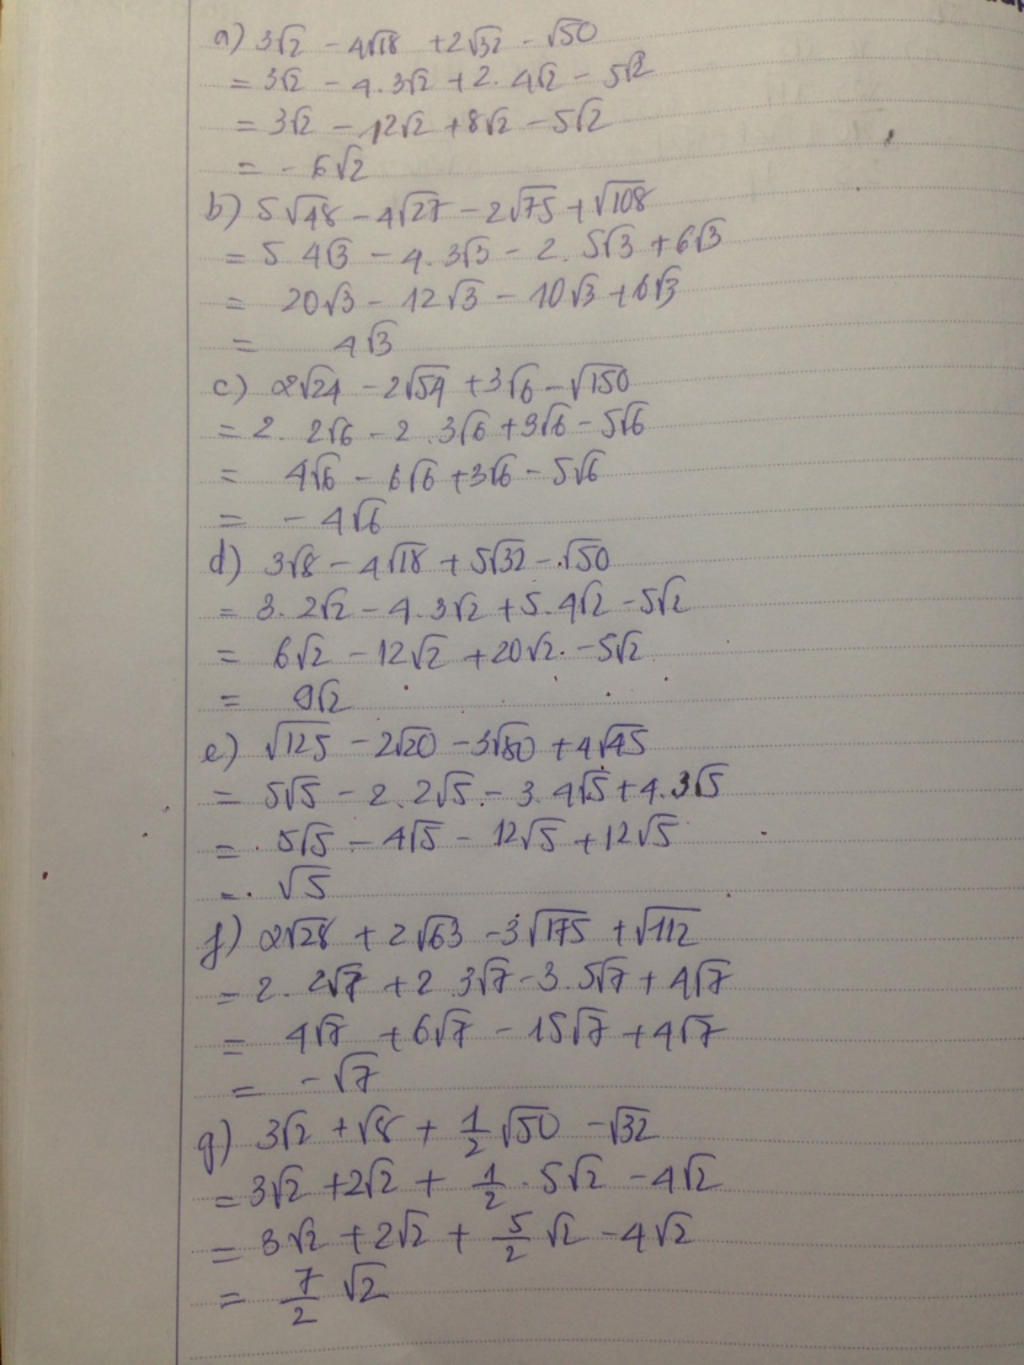 a) 3√2 - 4√18 + 2√32 - √50
= 3√2 - 4.3√2 + 2. 4√2 - 5√2
= 3√2 - 12√2 + 8√2 - 5√2
= - 6√2
b) 5√48 - 4√27 - 2√75 + √108
= 5 4√3 - 4. 3√3 - 2. 5√3 + 6√3
= 20√3 - 12√3 - 10√3 + 6√3
= 4√3
c) 2√24 - 2√54 + 3√6 - √150
= 2. 2√6 - 2 .3√6 + 3√6 - 5√6
= 4√6 - 6√6 + 3√6 - 5√6
= - 4√6
d) 3√8 - 4√18 + 5√32 - √50
= 3. 2√2 - 4. 3√2 + 5. 4√2 - 5√2
= 6√2 - 12√2 + 20√2 - 5√2
= 9√2
e) √125 - 2√20 - 3√80 + 4√45
= 5√5 - 2. 2√5 - 3. 4√5 + 4. 3√5
= 5√5 - 4√5 - 12√5 + 12√5
= √5
f) 2√28 + 2√63 - 3√175 + √112
= 2. 2√7 + 2 3√7 - 3. 5√7 + 4√7
= 4√7 + 6√7 - 15√7 + 4√7
= - √7
g) 3√2 + √8 + 1/2 √50 - √32
= 3√2 + 2√2 + 1/2 . 5√2 - 4√2
= 3√2 + 2√2 + 5/2 √2 - 4√2
= 7/2 √2